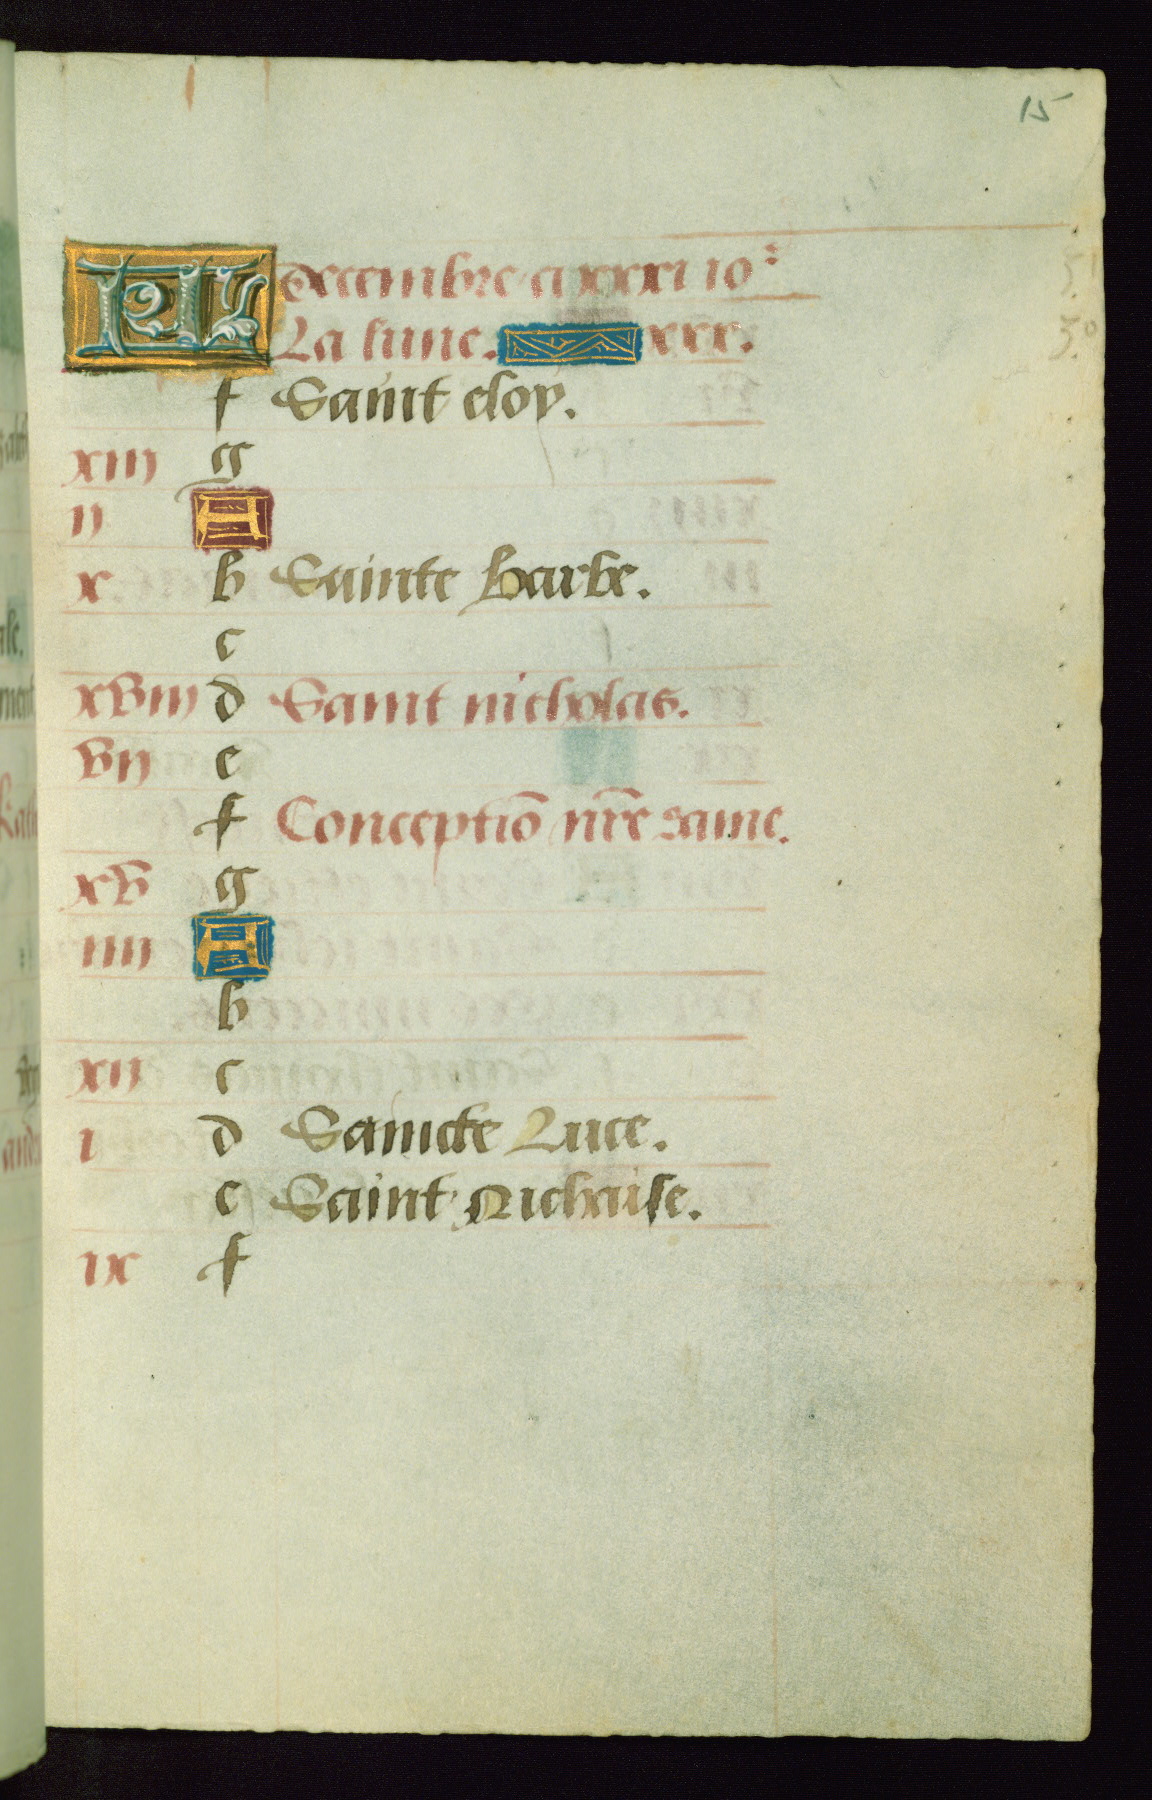 15
KL Decembre a xxxi io᷒
La lune. xxx.
f Saint eloy.
xiii g
ii A
x. b Sainte barbe.
c
xviii d Saint nicholas.
vii e
f Conceptiō nr̄e dame.
xv g
iiii A
b
xii c
i d Saincte Luce.
e Saint Nichaise.
ix f